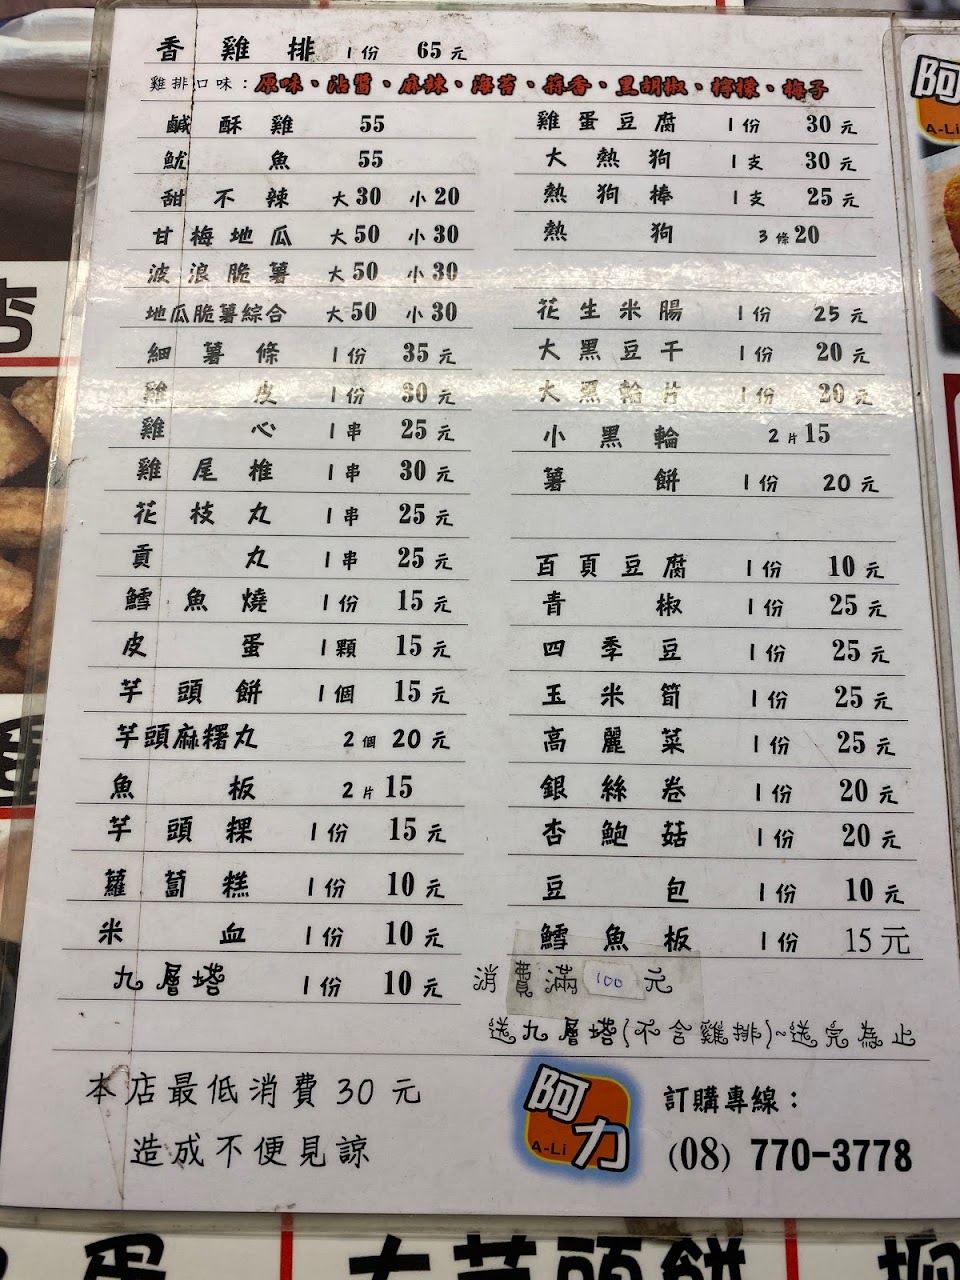 香雞排 1份 65元
雞排口味：原味、沾醬、麻辣、海苔、蒜香、黑胡椒、檸檬、梅子
鹹酥雞 55
魷魚 55
甜不辣 大30 小20
甘梅地瓜 大50 小30
波浪脆薯 大50 小30
地瓜脆薯綜合 大50 小30
細薯條 1份 35元
雞皮 1份 30元
雞心 1串 25元
雞尾椎 1串 30元
花枝丸 1串 25元
貢丸 1串 25元
鱈魚燒 1份 15元
皮蛋 1顆 15元
芋頭餅 1個 15元
芋頭麻糬丸 2個 20元
魚板 2片 15
芋頭粿 1份 15元
蘿蔔糕 1份 10元
米血 1份 10元
九層塔 1份 10元
雞蛋豆腐 1份 30元
大熱狗 1支 30元
熱狗棒 1支 25元
熱狗 3條20
花生米腸 1份 25元
大黑豆干 1份 20元
大黑輪片 1份 20元
小黑輪 2片15
薯餅 1份 20元
百頁豆腐 1份 10元
青椒 1份 25元
四季豆 1份 25元
玉米筍 1份 25元
高麗菜 1份 25元
銀絲卷 1份 20元
杏鮑菇 1份 20元
豆包 1份 10元
鱈魚板 1份 15元
消費滿100元
送九層塔(不含雞排)~送完為止
本店最低消費30元
造成不便見諒
阿力
A-Li
訂購專線：
(08) 770-3778
阿
A-Li
蛋
大芋頭餅